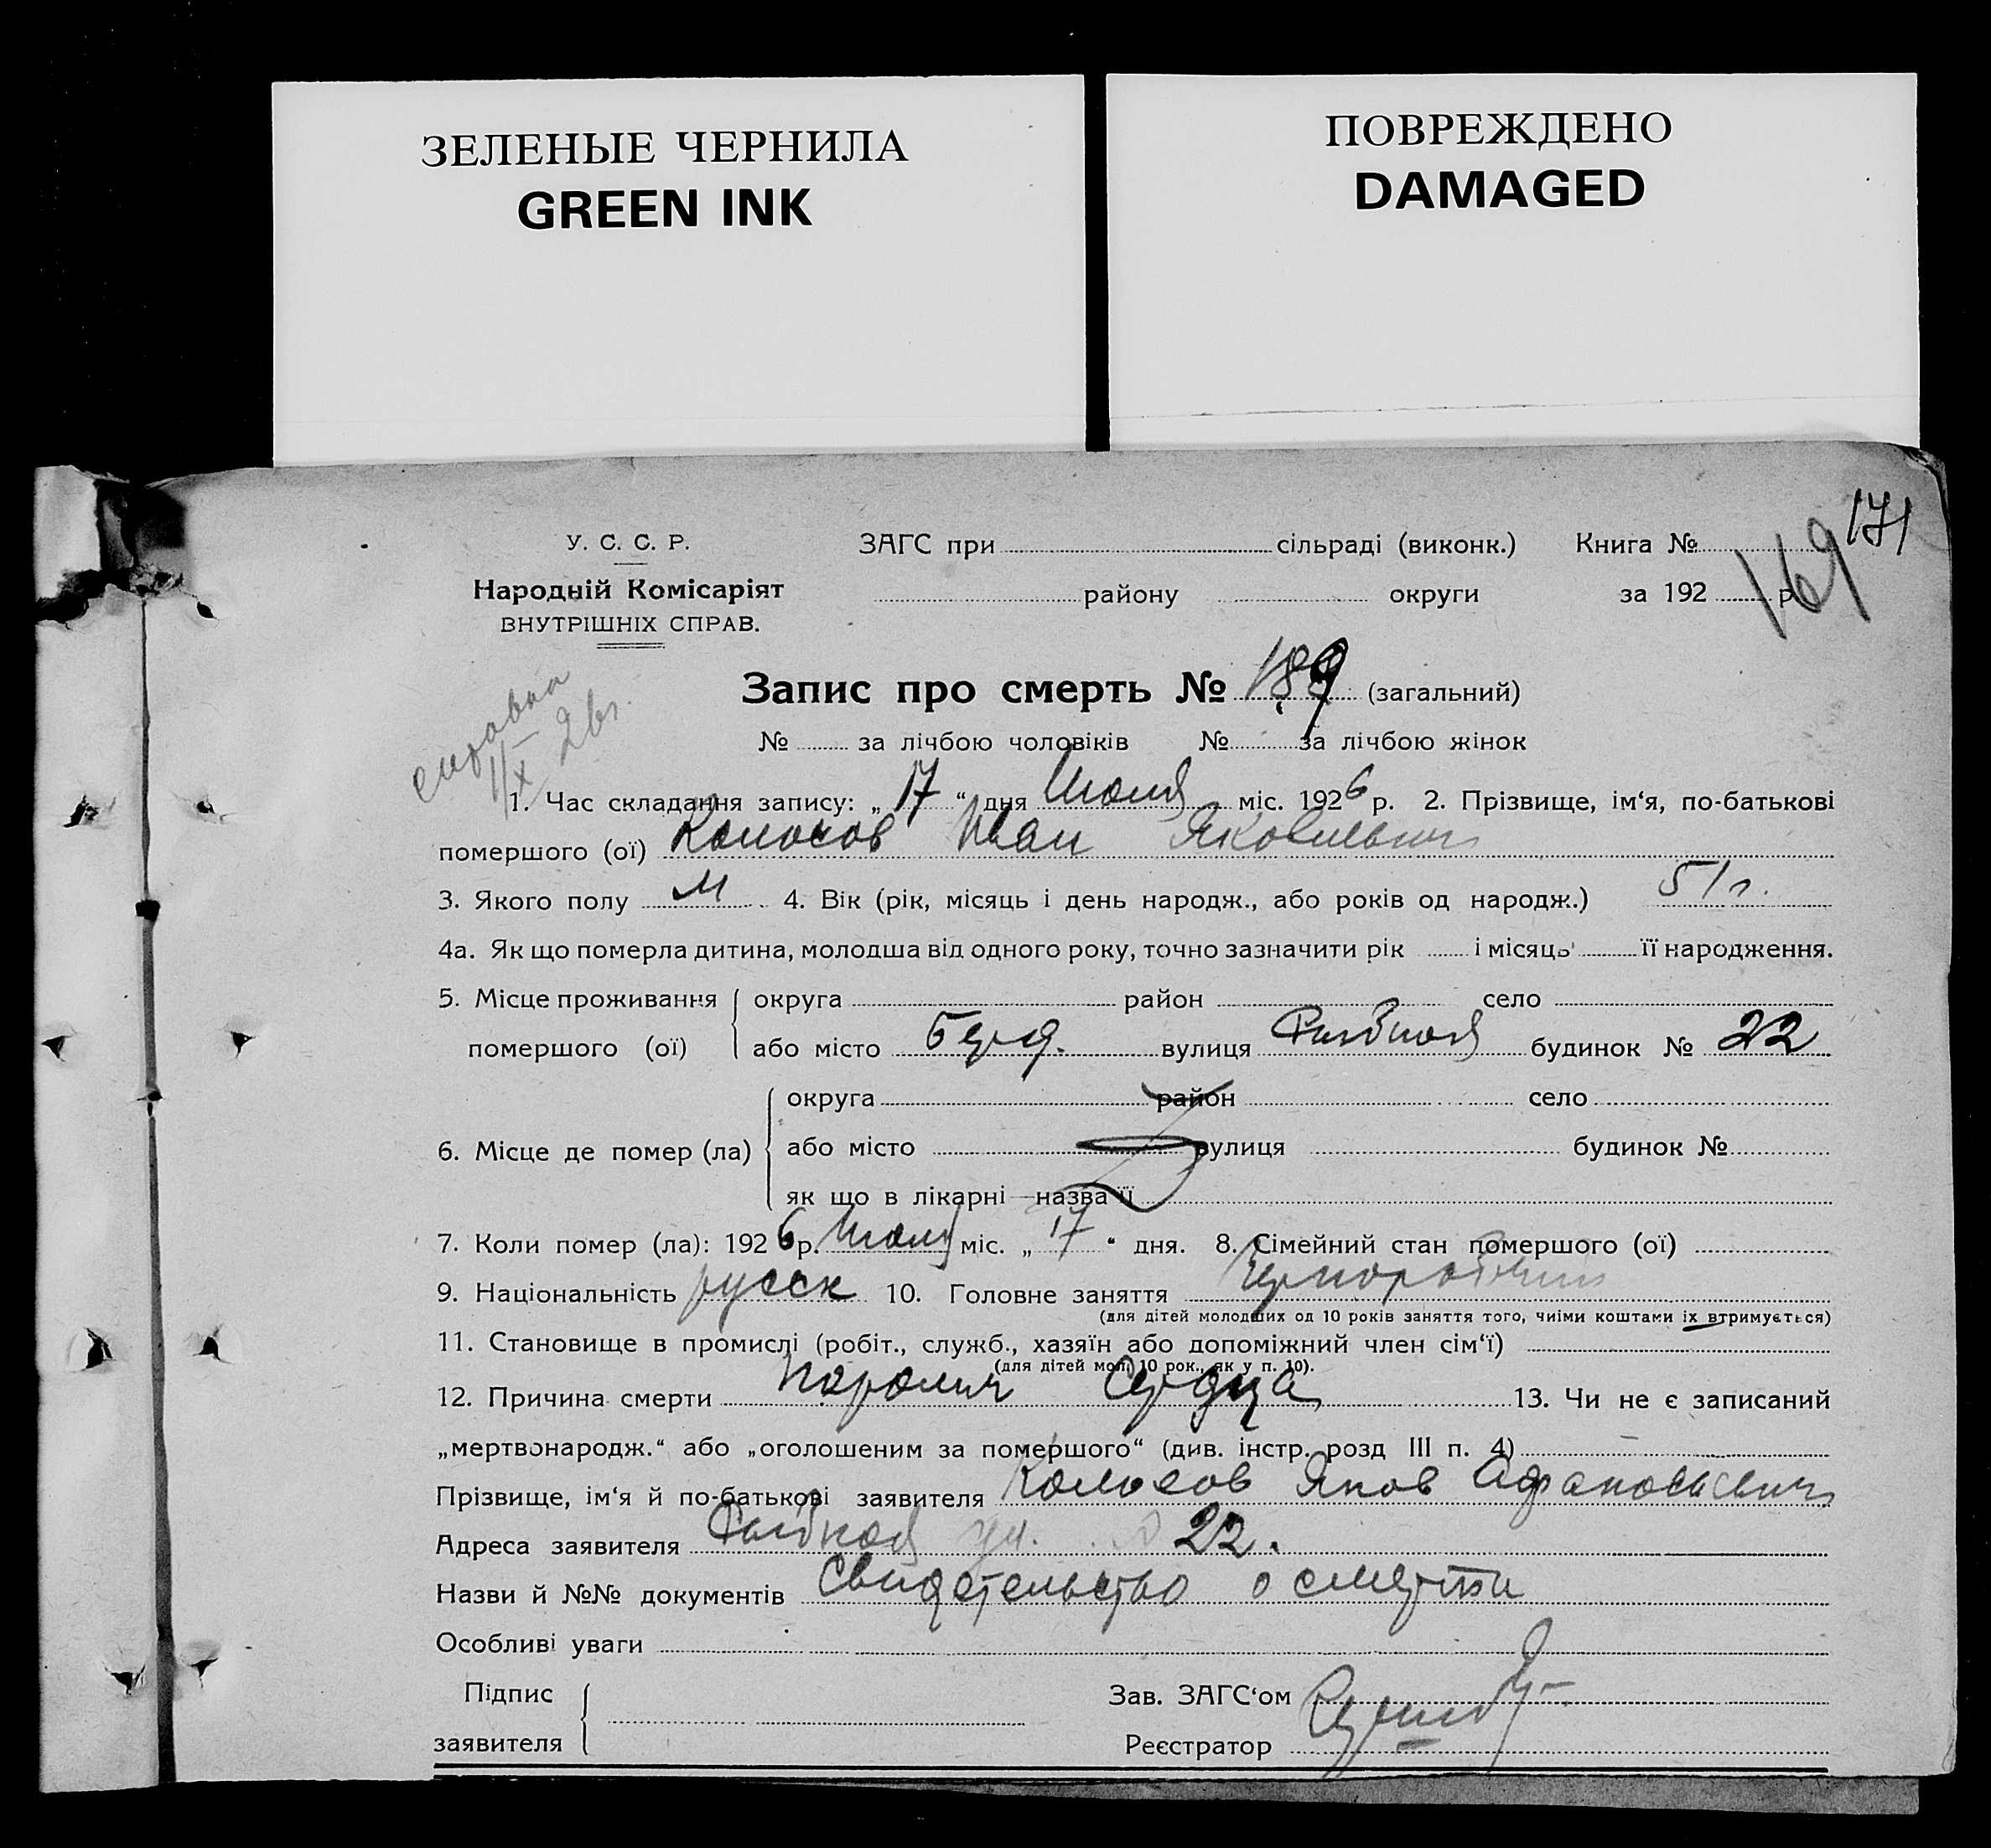 ЗЕЛЕНЫЕ ЧЕРНИЛА
GREEN INK
ПОВРЕЖДЕНО
DAMAGED
171
169
У. С. С. Р.
Народній Комісаріят
ВНУТРІШНІХ СПРАВ.
ЗАГС при сільраді (виконк.) Книга №
району округи за 192 р.
Запис про смерть № 189 (загальний)
№ за лічбою чоловіків № за лічбою жінок
справка
1/X 26г.
1. Час складання запису: „17“ дня Июля міс. 1926 р. 2. Прізвище, ім‘я, по-батькові
помершого (ої) Колосов Иван Яковлевич
3. Якого полу М 4. Вік (рік, місяць і день народж., або років од народж.) 51 г.
4а. Як що померла дитина, молодша від одного року, точно зазначити рік і місяць її народження.
5. Місце проживання помершого (ої) округа район село
або місто Берд. вулиця Рыбная будинок № 22
6. Місце де помер (ла) округа район село
або місто вулиця будинок №
як що в лікарні назва її
7. Коли помер (ла): 1926 р. Июля міс. „17“ дня. 8. Сімейний стан помершого (ої)
9. Національність русск 10. Головне заняття Чернорабочий
(для дітей молодших од 10 років заняття того, чиїми коштами їх втримується)
11. Становище в промислі (робіт., служб., хазяїн або допоміжний член сім‘ї)
(для дітей мол. 10 рок., як у п. 10).
12. Причина смерти Паралич Сердца 13. Чи не є записаний
„мертвонародж.“ або „оголошеним за помершого“ (див. інстр. розд III п. 4)
Прізвище, ім‘я й по-батькові заявителя Колосов Яков Афанасьевич
Адреса заявителя Рыбная ул. 22.
Назви й №№ документів Свидетельство о смерти
Особливі уваги
Підпис заявителя
Зав. ЗАГС‘ом
Реєстратор